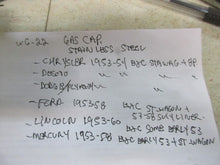 UG-22 GAS CAP
STAINLESS STEEL
- CHRYSLER 1953-54 EXC STAWAG + 8P.
- DESOTO " " "
- DODGE/PLYMOUTH " " "
- FORD 1953-58 EXC ST.WAGON +
57-58 SKYLINER
- LINCOLN 1953-60 EXC SOME EARLY 53
- MERCURY 1953-58 EXC EARLY 53 + ST WAGON